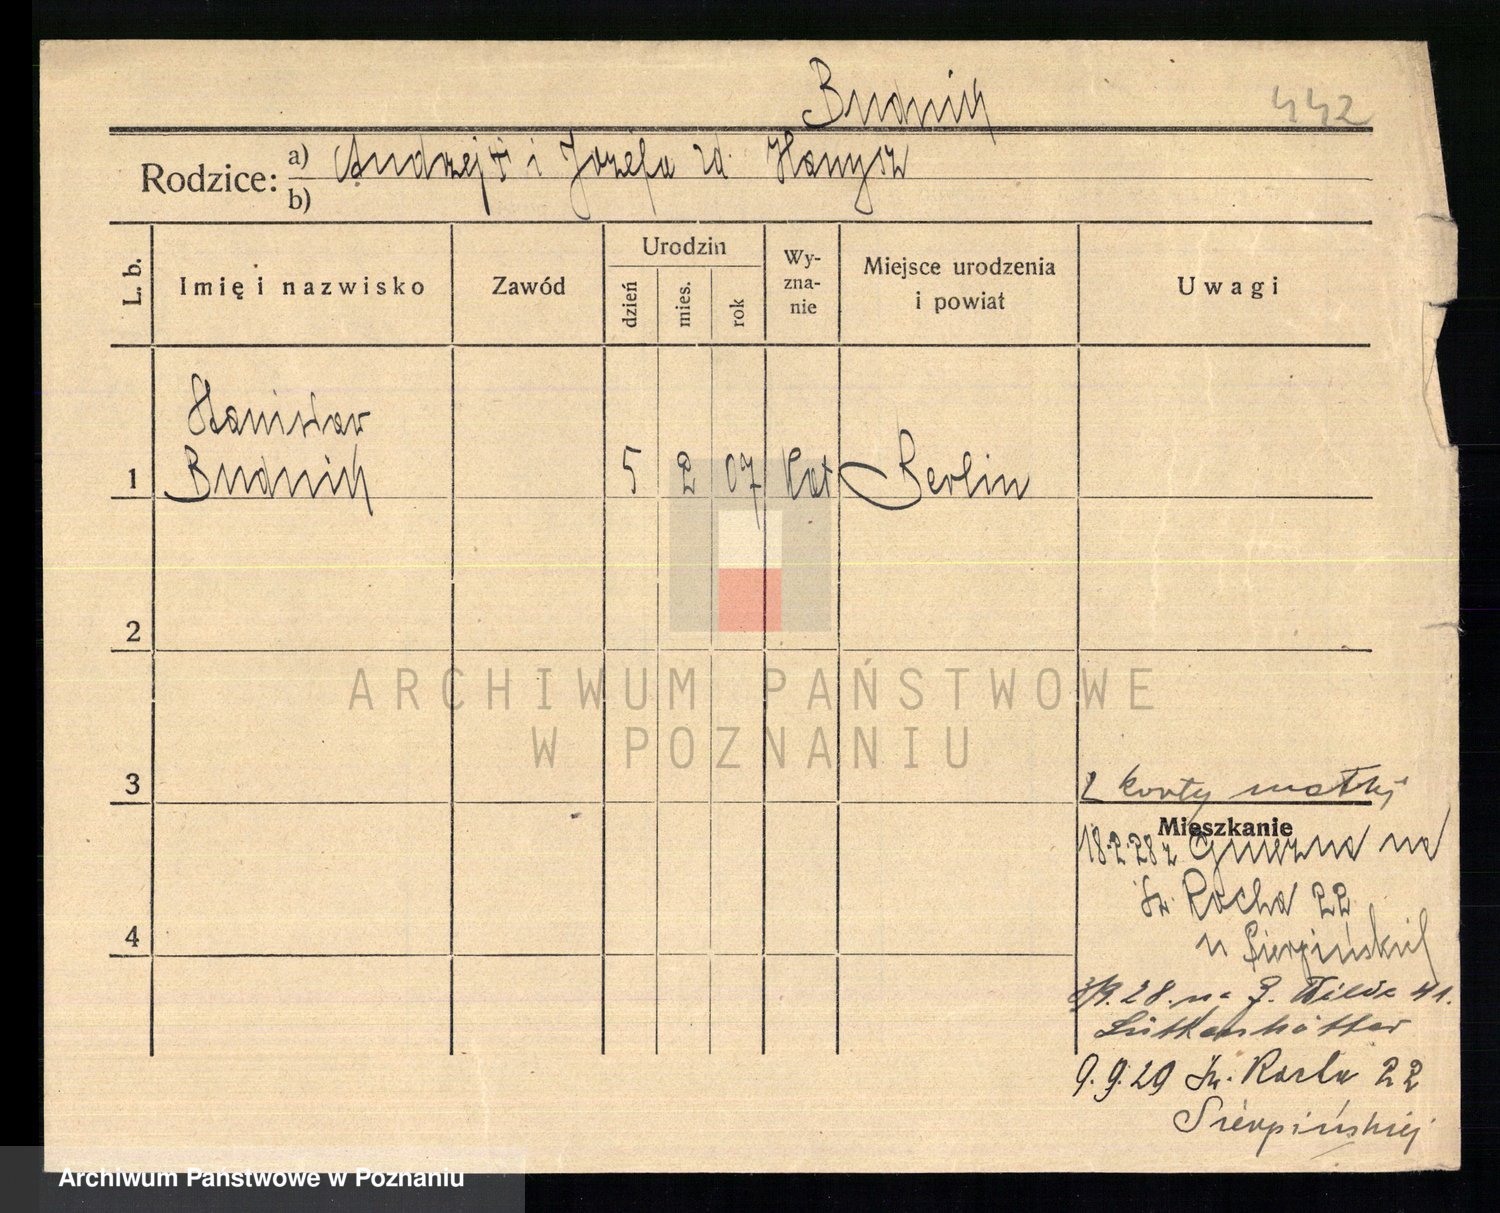 Budnik
442
Rodzice: a) Andrzej † i Józefa zd. Hanysz
b)
L. b.
Imię i nazwisko
Zawód
Urodzin
dzień
mies.
rok
Wy-
zna-
nie
Miejsce urodzenia
i powiat
Uwagi
Stanisław
1 Budnik 5 2 07 kat Berlin
2
ARCHIWUM PAŃSTWOWE
W POZNANIU
3
z karty matki
Mieszkanie
18.2.28 z Gniezna na
Św. Rocha 22
4
u Sierpińskiej
28. na G. Wilda 41.
9.9.29 Św. Rocha 22
Sierpińskiej
Archiwum Państwowe w Poznaniu